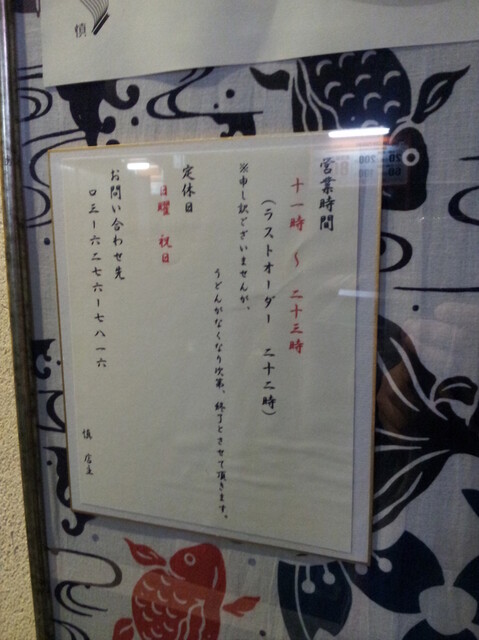 慎
営業時間
十一時 〜 二十三時
(ラストオーダー 二十二時)
※申し訳ございませんが、
うどんがなくなり次第、終了とさせて頂きます。
定休日
日曜 祝日
お問い合わせ先
〇三ー六二七六ー七八一六
慎 店主